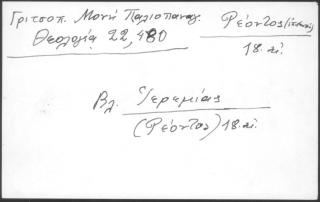 Γριτσοπ. Μονή Παλιοπαναγ.
Θεολογία 22, 480
Ρέοντος
18. αἰ.
Βλ. Ἱερεμίας
(Ρέοντος) 18. αἰ.